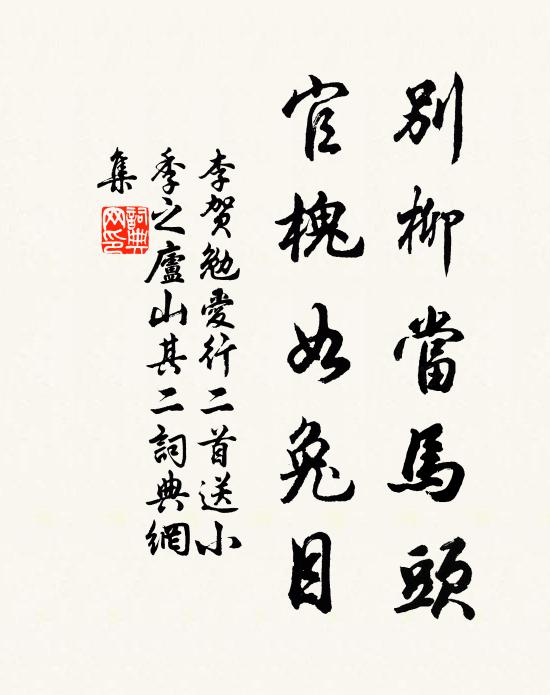 別柳當馬頭
官槐如兔目
李賀勉愛行二首送小
季之廬山其二詞典網
集
詞典
网印